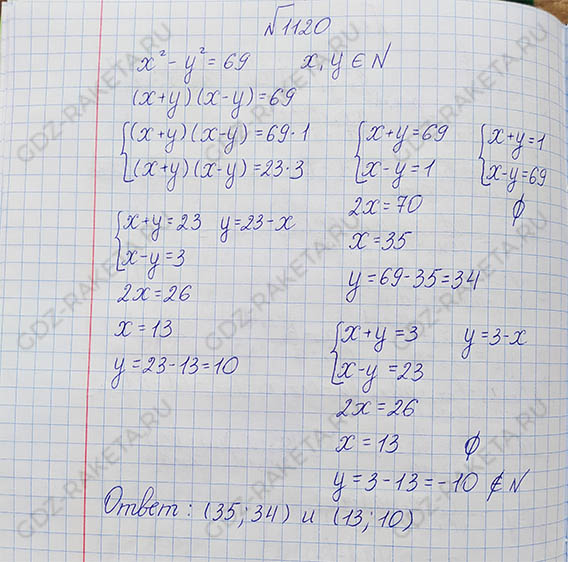 №1120
x² - y² = 69 x, y ∈ N
(x+y)(x-y)=69
{(x+y)(x-y)=69·1
{(x+y)(x-y)=23·3
{x+y=69
{x-y=1
2x=70
x=35
y=69-35=34
{x+y=1
{x-y=69
∅
{x+y=23 y=23-x
{x-y=3
2x=26
x=13
y=23-13=10
{x+y=3 y=3-x
{x-y=23
2x=26
x=13 ∅
y=3-13=-10 ∉ N
Ответ: (35; 34) и (13; 10)
GDZ-RAKETA.RU